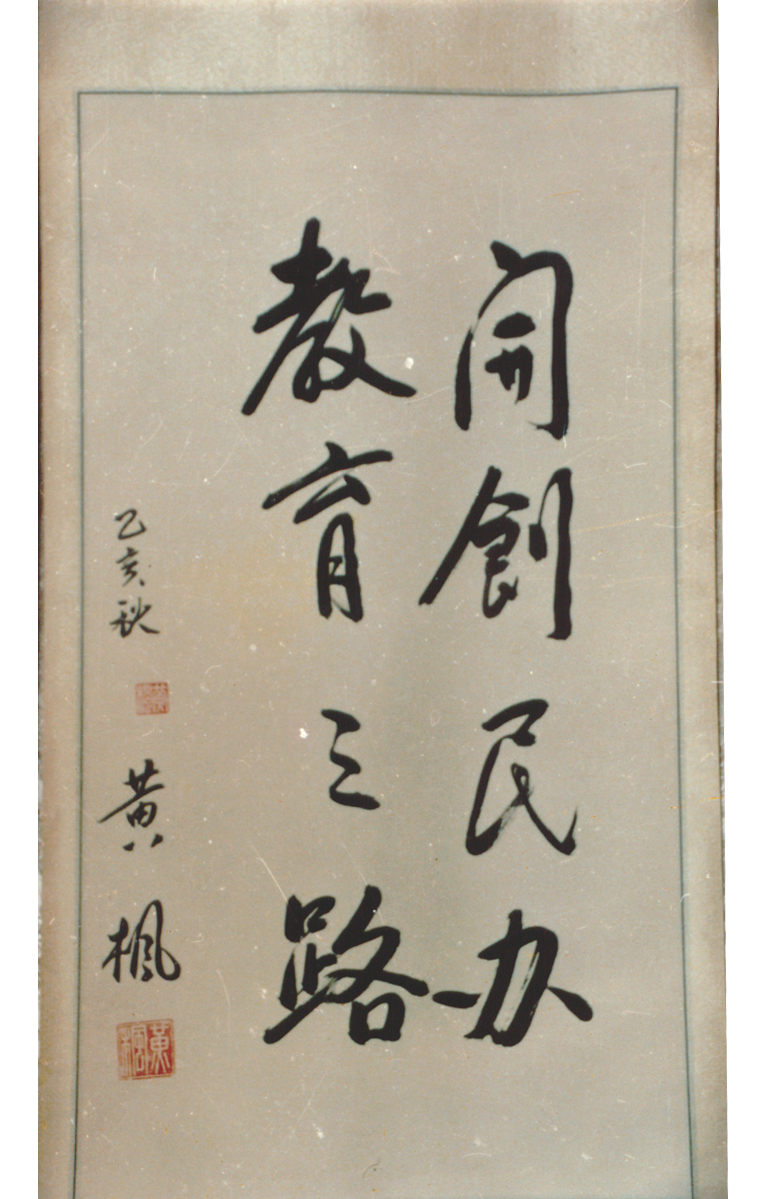 開創民办
教育之路
乙亥秋
黄楓
黄楓